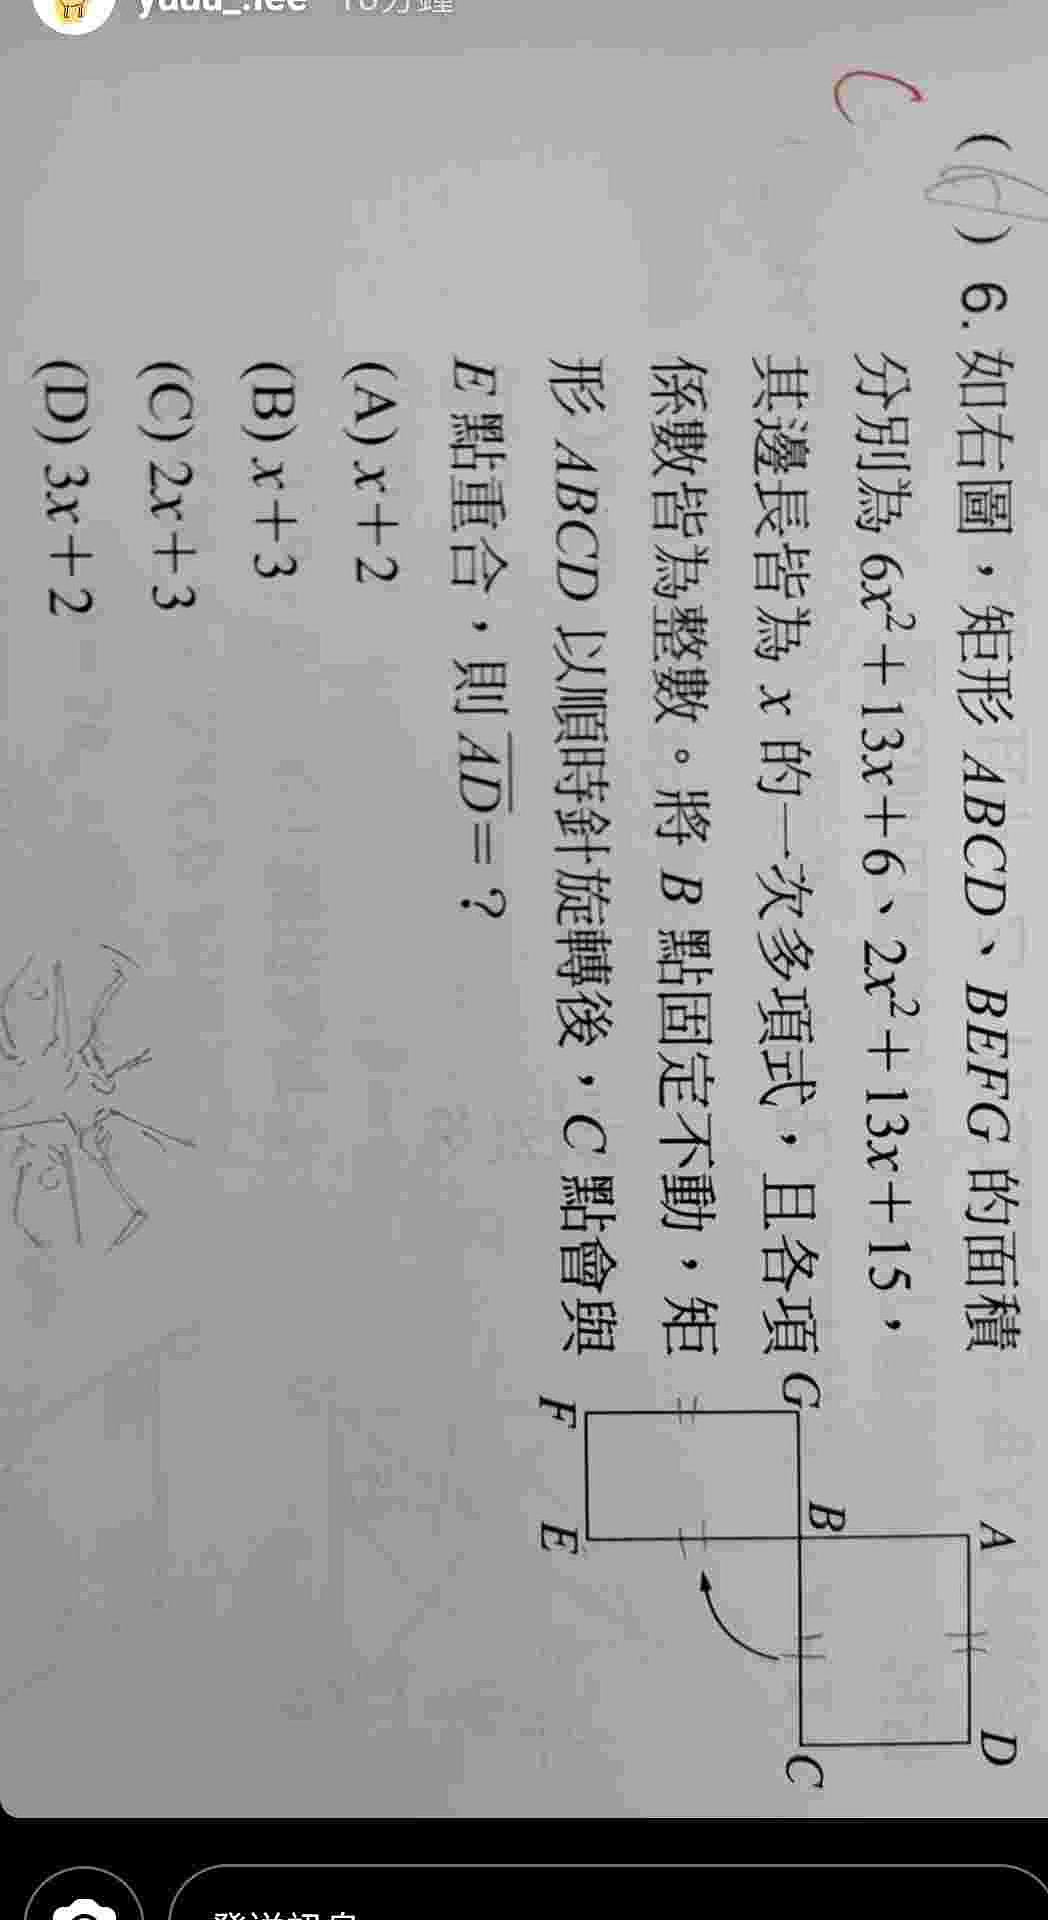 ( ) 6. 如右圖，矩形 ABCD、BEFG 的面積
分別為 6x²＋13x＋6、2x²＋13x＋15，
其邊長皆為 x 的一次多項式，且各項
係數皆為整數。將 B 點固定不動，矩
形 ABCD 以順時針旋轉後，C 點會與
E 點重合，則 AD＝？
(A) x＋2
(B) x＋3
(C) 2x＋3
(D) 3x＋2
A
D
B
C
G
F
E